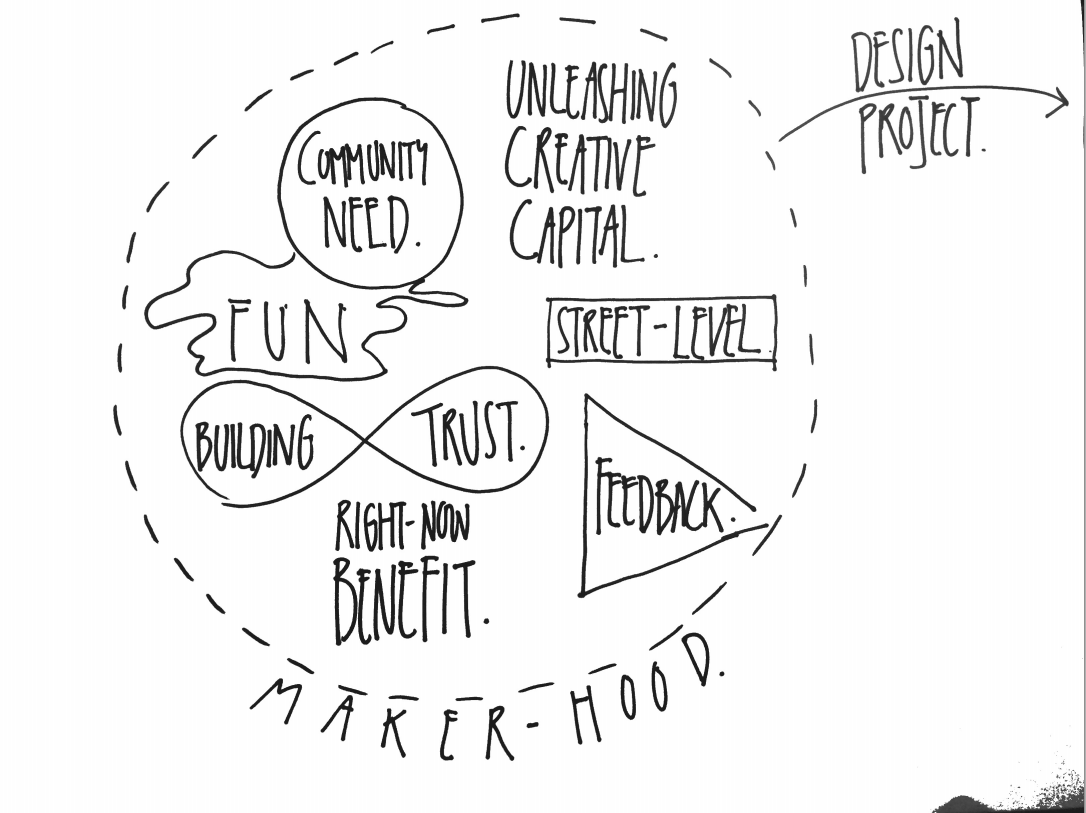 DESIGN
PROJECT.
UNLEASHING
CREATIVE
CAPITAL.
COMMUNITY
NEED.
FUN
STREET-LEVEL.
BUILDING TRUST.
FEEDBACK.
RIGHT-NOW
BENEFIT.
MAKER-HOOD.